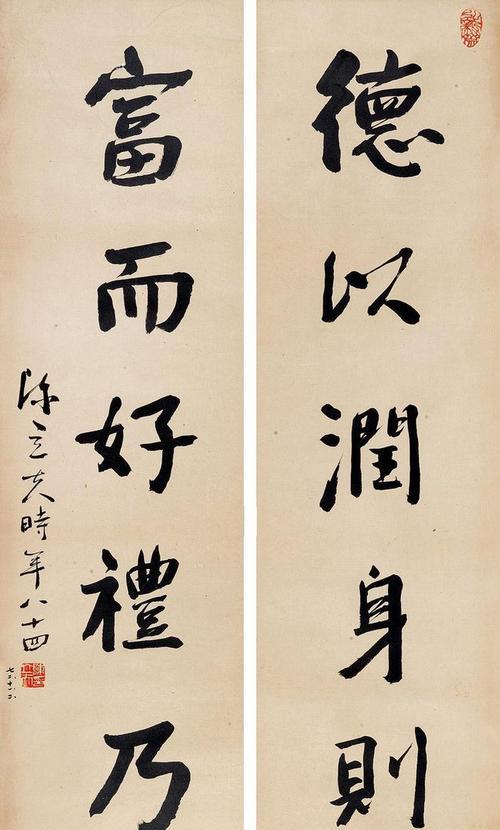 德以潤身則
富而好禮乃
陳立夫時年八十四